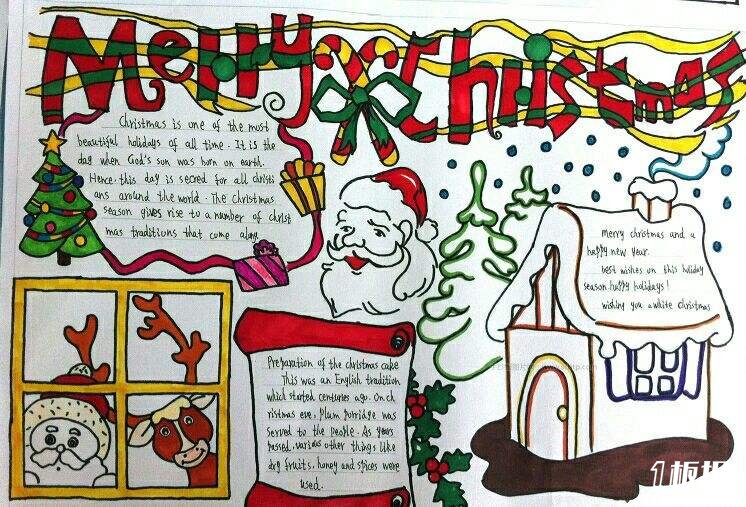 Merry Christmas
Christmas is one of the most
beautiful holidays of all time. It is the
day when God's sun was horn on earth.
Hence, this day is secred for all christi
ans around the world. The christmas
season gives rise to a number of christ
mas traditions that come along
merry christmas and a
happy new year.
best wishes on this holiday
season.happy holidays!
wishing you a white christmas
Preparation of the christmas cake
This was an English tradition
which started centuries ago. On ch
ristmas eve, plum porridge was
served to the people. As years
passed, various other things like
dry fruits, honey and spices were
used.